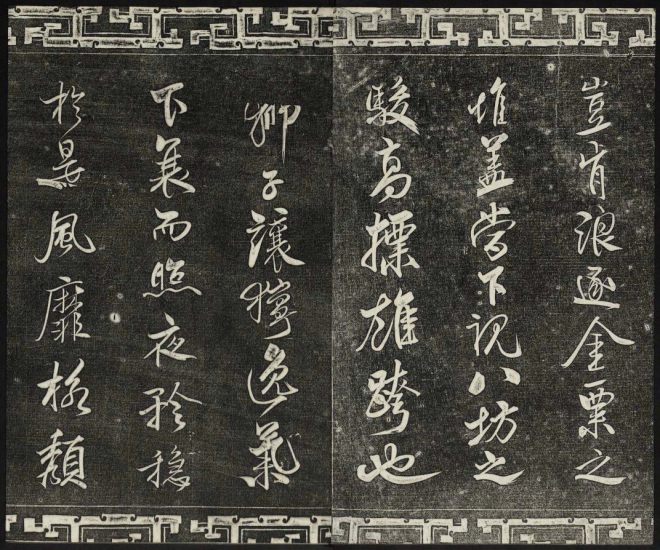 豈肯浪逐金粟之
堆盖當下視八坊之
駿高摽雄跨也
獅子讓獰逸氣
下衰而照夜矜穩
於是風靡格頹